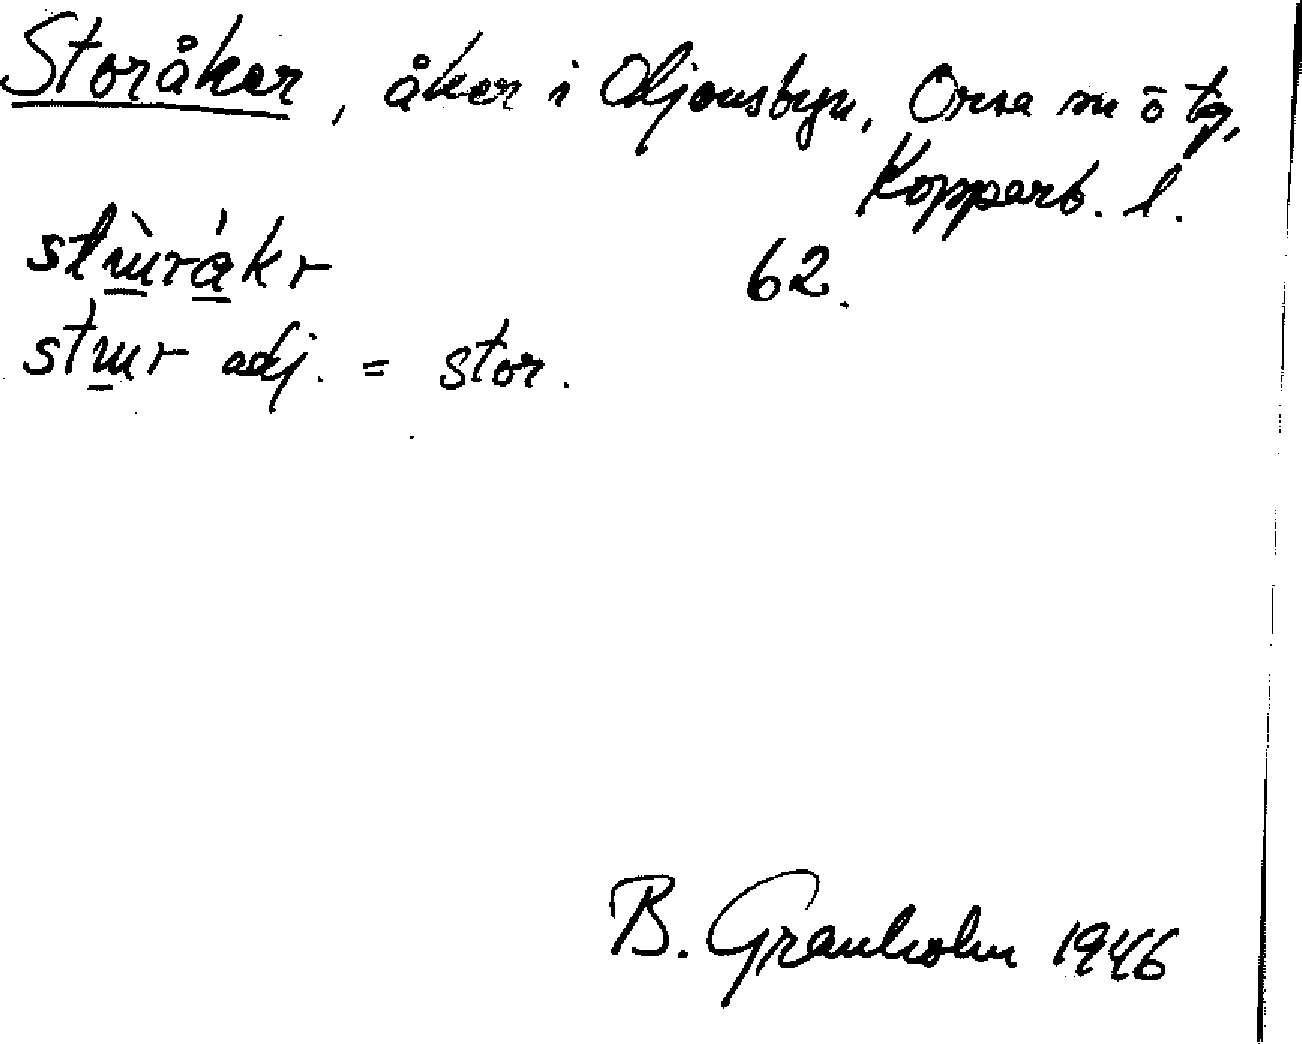 Storåker, åker i Oljonsbyn, Orsa sn o tg,
Kopparb. l.
62.
adj. = stor.
B. Granholm 1946